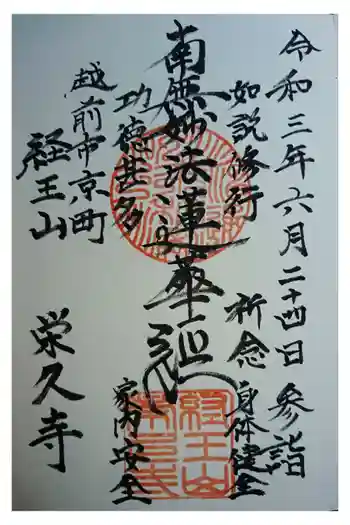 令和三年六月二十四日 参詣
如説修行 祈念 身体健全
南無妙法蓮華経
功徳甚多 家内安全
越前市京町
経王山 栄久寺
経王山
栄久寺